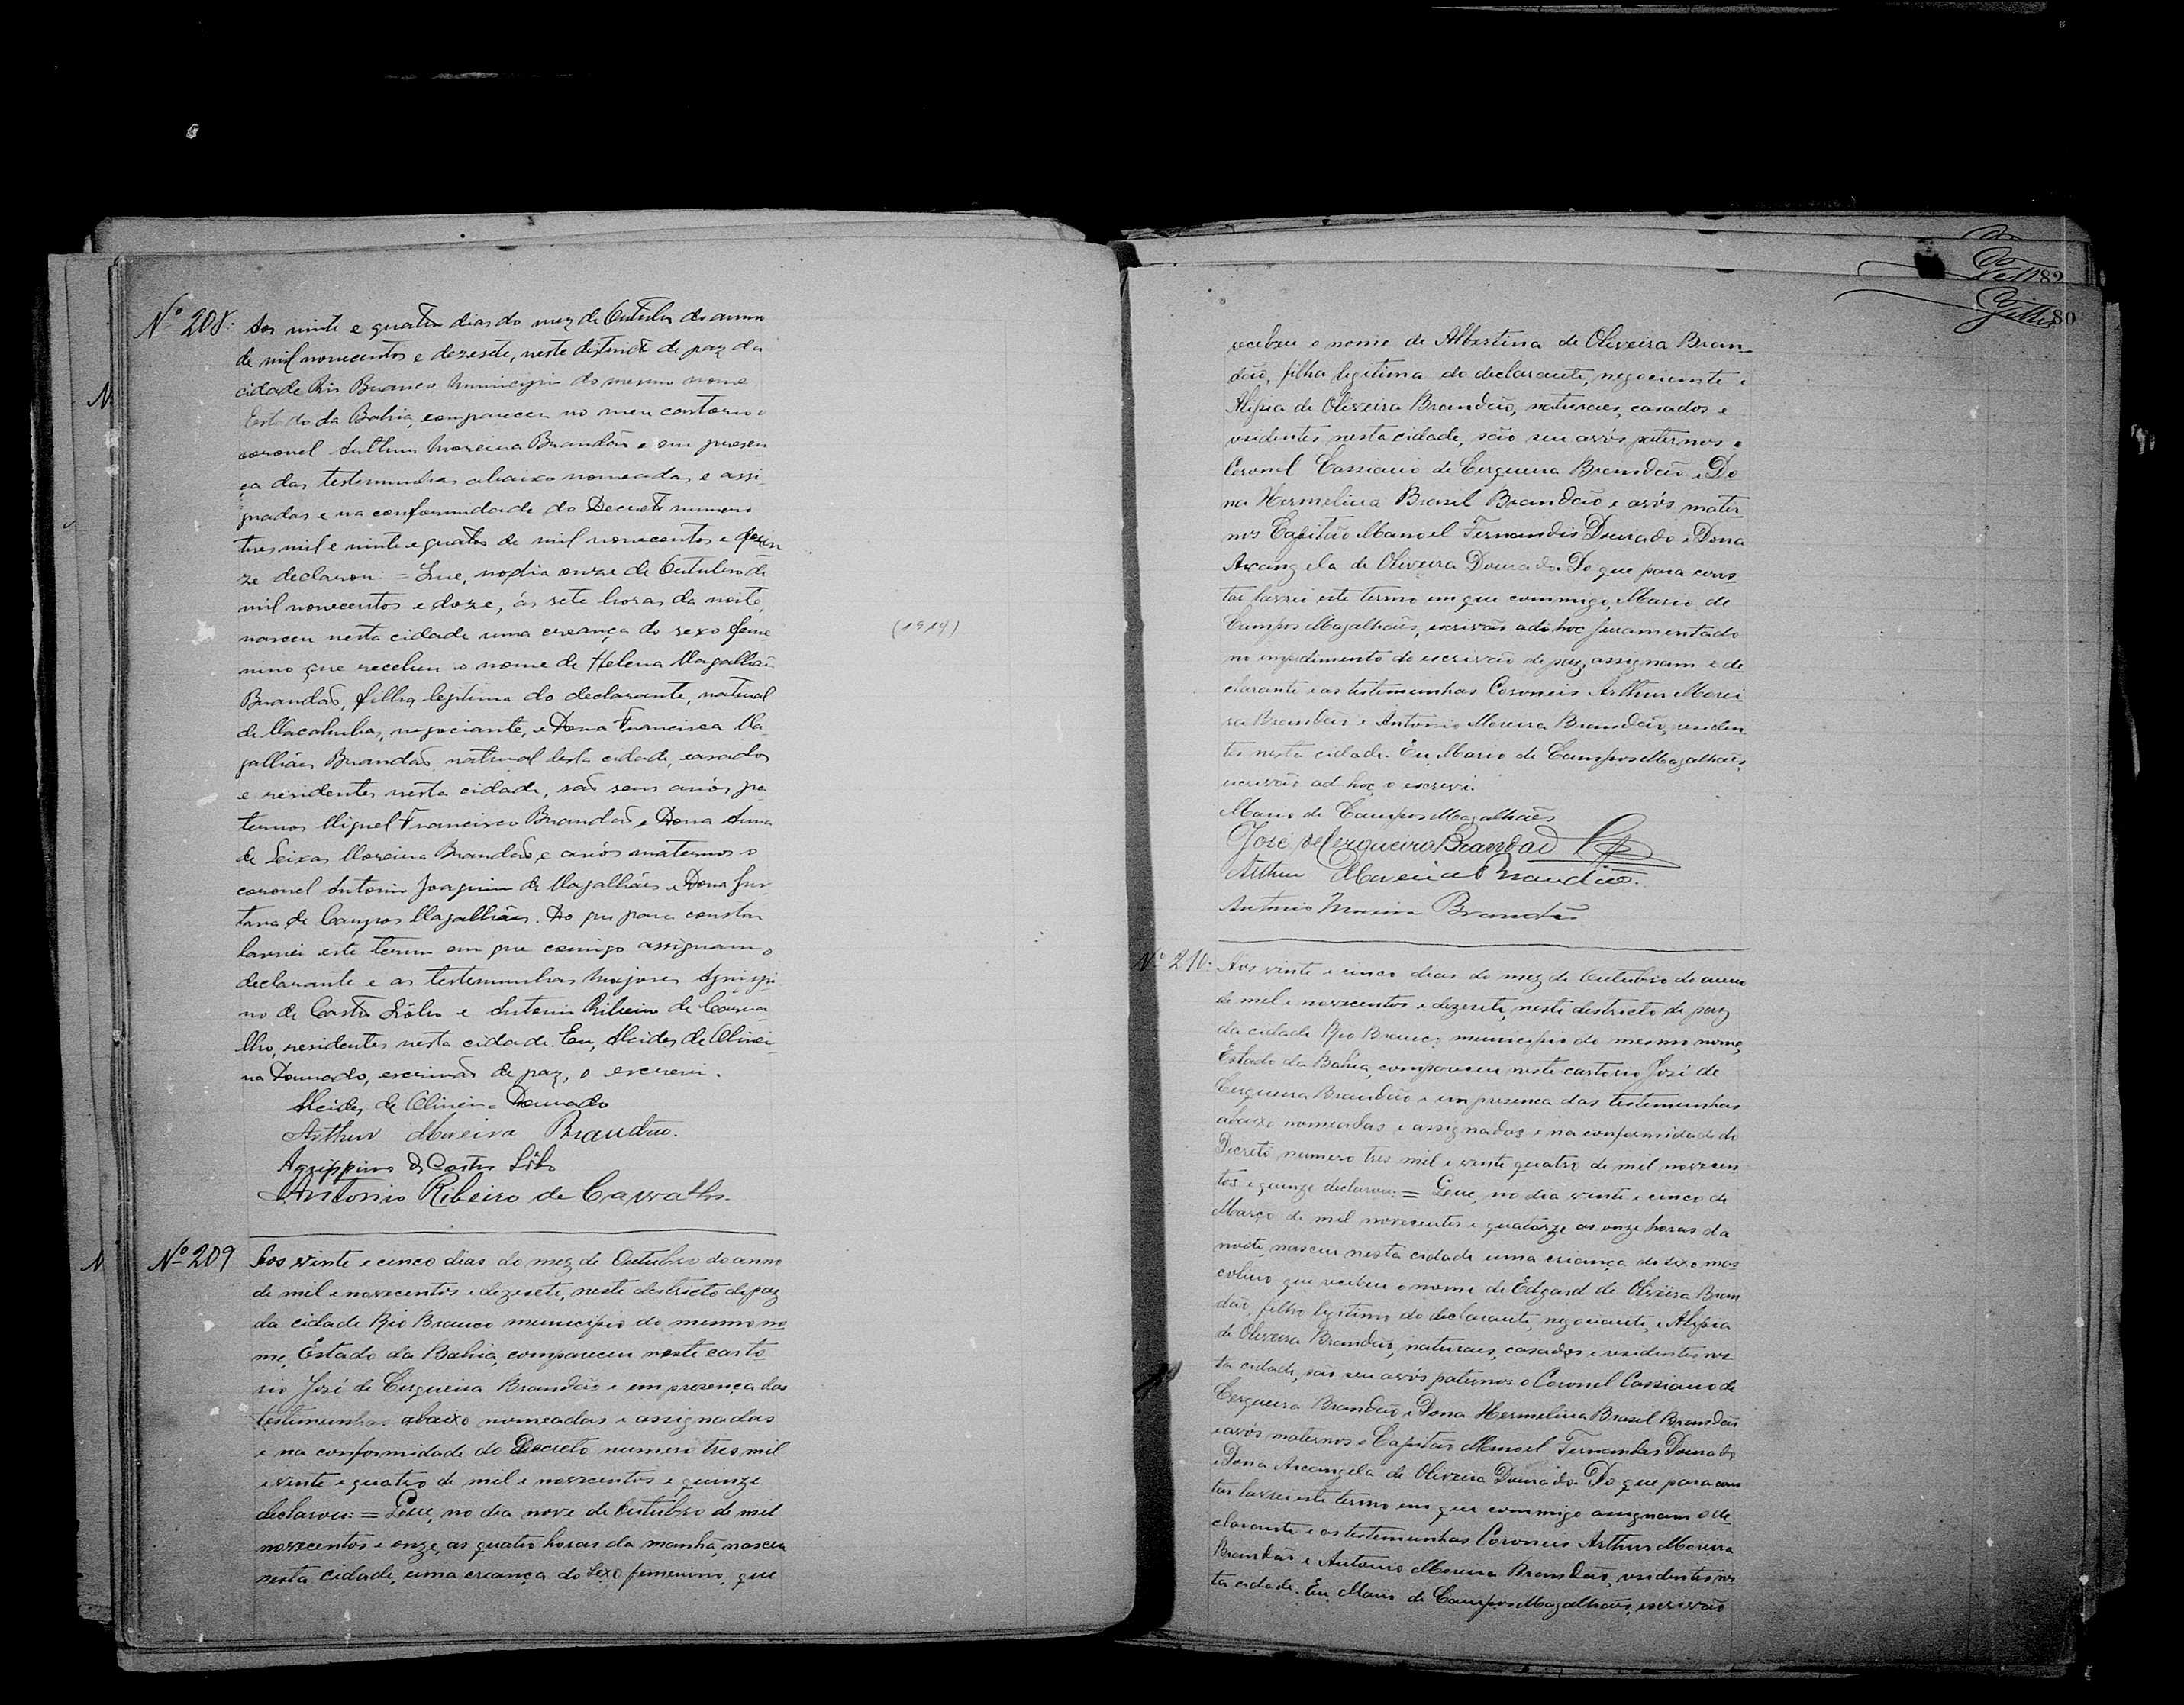 Nº 208: Aos vinte e quatro dias do mez de Outubro do anno
de mil novecentos e dezesete, neste districto de paz da
cidade Rio Branco municipio do mesmo nome
Estado da Bahia, compareceu no meu cartorio o
coronel Arthur Moreira Brandão e em presen
ça das testemunhas abaixo nomeadas e assi-
gnadas e na conformidade do Decreto numero
tres mil e vinte e quatro de mil novecentos e
declarou: = Que, no dia onze de Outubro de
mil novecentos e doze, ás sete horas da noite,
nasceu nesta cidade uma creança do sexo feme
nino que recebeu o nome de Helena Magalhães
Brandão, filha legitima do declarante, natural
de Macahubas, negociante, e Dona Francisca Ma-
galhães Brandão natural desta cidade, casados
e residentes nesta cidade, são seus avós pa-
ternos Miguel Francisco Brandão e Dona Anna
de Seixas Moreira Brandão, e avós maternos o
coronel Antonio Joaquim de Magalhães e Dona
de Campos Magalhães. Do que para constar
lavrei este termo em que comigo assignam o
declarante e as testemunhas majores Agrippi
no de Castro Lôbo e Antonio Ribeiro de Carva-
lho, residentes nesta cidade. Eu, Alcides de Olivei-
ra Dourado, escrivão de paz, o escrevi.
Alcides de Oliveira Dourado
Arthur Moreira Brandão.
Agrippino de Castro Lôbo
Antonio Ribeiro de Carvalho.
(1914)
Nº 209 Aos vinte e cinco dias do mez de Outubro do anno
de mil e novecentos e dezesete, neste destricto de paz
da cidade Rio Branco municipio do mesmo no
me, Estado da Bahia, compareceu neste carto
rio José de Cerqueira Brandão e em presença das
testemunhas abaixo nomeadas e assignadas
e na conformidade do Decreto numero tres mil
e vinte e quatro de mil e novecentos e quinze
declarou: = Que, no dia nove de Outubro de mil
novecentos e onze, as quatro horas da manhã, nasceu
nesta cidade, uma criança do sexo femenino, que
82
80
recebeu o nome de Albertina de Oliveira Bran-
dão, filha legitima do declarante, negociante e
Alipia de Oliveira Brandão, naturaes, casados e
residentes nesta cidade, são seu avós paternos o
Coronel Cassiano de Cerqueira Brandão e Do
na Hermelina Brasil Brandão e avós mater
nos Capitão Manoel Fernandes Dourado e Dona
Arcangela de Oliveira Dourado. Do que para cons-
tar lavrei este termo em que commigo, Mario de
Campos Magalhães, escrivão ad hoc juramentado
no impedimento do escrivão de paz, assignam o de
clarante e as testemunhas Coroneis Arthur Morei
ra Brandão e Antonio Moreira Brandão, residen
tes nesta cidade. Eu, Mario de Campos Magalhães,
escrivão ad hoc, o escrevi.
Mario de Campos Magalhães
José de Cerqueira Brandão
Arthur Moreira Brandão.
Antonio Moreira Brandão
Nº 210: Aos vinte e cinco dias do mez de Outubro do anno
de mil e novecentos e dezesete, neste destricto de paz
da cidade Rio Branco municipio do mesmo nome,
Estado da Bahia, compareceu neste cartorio José de
Cerqueira Brandão e em presença das testemunhas
abaixo nomeadas e assignadas e na conformidade do
Decreto numero tres mil e vinte quatro de mil novecen
tos e quinze declarou: = Que, no dia vinte e cinco de
Março de mil novecentos e quatorze as onze horas da
noite, nasceu nesta cidade uma criança do sexo mas
colino que recebeu o nome de Edgard de Oliveira Bran
dão, filho legitimo do declarante, negociante, e Alipia
de Oliveira Brandão, naturaes, casados e residentes nes
ta cidade, são seu avós paternos o Coronel Cassiano de
Cerqueira Brandão e Dona Hermelina Brasil Brandão
e avós maternos o Capitão Manoel Fernandes Dourado
e Dona Arcangela de Oliveira Dourado. Do que para cons
tar lavrei este termo em que commigo assignam o de
clarante e as testemunhas Coroneis Arthur Moreira
Brandão e Antonio Moreira Brandão, residentes nes
ta cidade. Eu, Mario de Campos Magalhães, escrivão